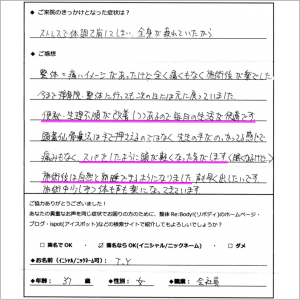 ◆ ご来院のきっかけとなった症状は？
ストレスで体調を崩してしまい、全身が疲れていたから
◆ ご感想
整体＝痛いイメージがあったけど全く痛くもなく施術後が楽でした
今まで接骨院・整体に行っても次の日には元に戻っていました
便秘・生理不順が改善しつつあるので毎日の生活が快適です
頭蓋仙骨療法は手で押さえるのではなく先生の手がのっかってる感じで
痛みもなくスパをしたように頭が軽くなった気がします(眠くなりました)
施術後は自然と熟睡できるようになりました。
施術中少しずつ体も声も楽になってきています
ご協力ありがとうございました！
あなたの貴重なお声を同じ症状でお困りの方のために、整体 Re:Body!(リボディ)のホームページ・
ブログ・ispot(アイスポット)などの検索サイトで紹介してもよろしいでしょうか？
・ 署名でOK ・ 匿名ならOK(イニシャル/ニックネーム) ・ ダメ
◆お名前 (イニシャル/ニックネーム可)： T.Y
◆年齢： 37 歳 ◆性別： 女 ◆職業： 会社員